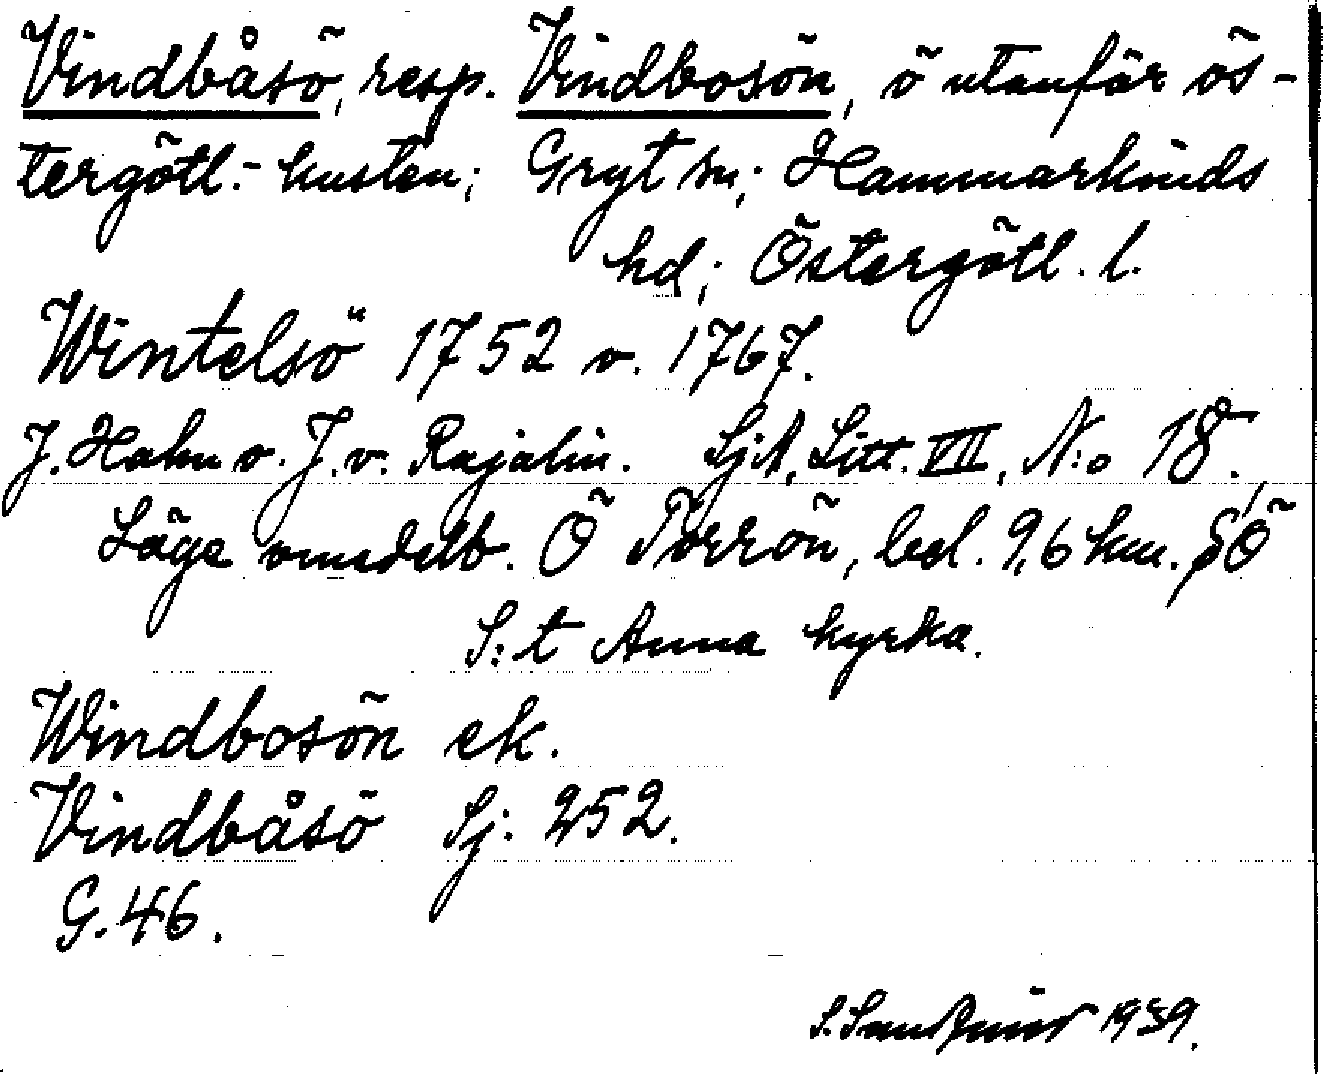 Vindbåsö, resp. Vindbosön, ö utanför ös-
tergötl.- kusten; Gryt sn; Hammarkinds
hd; Östergötl. l.
Wintelsö 1752 o. 1767.
J. Hahn o. J. v. Rajalin. SjA, Litt. VII, N:o 18.
Läge omedelb. Ö Torrön, bel. 9,6 km. SÖ
S:t Anna kyrka.
Windbosön ek.
Vindbåsö Sj. 252.
G. 46.
S. 1939.